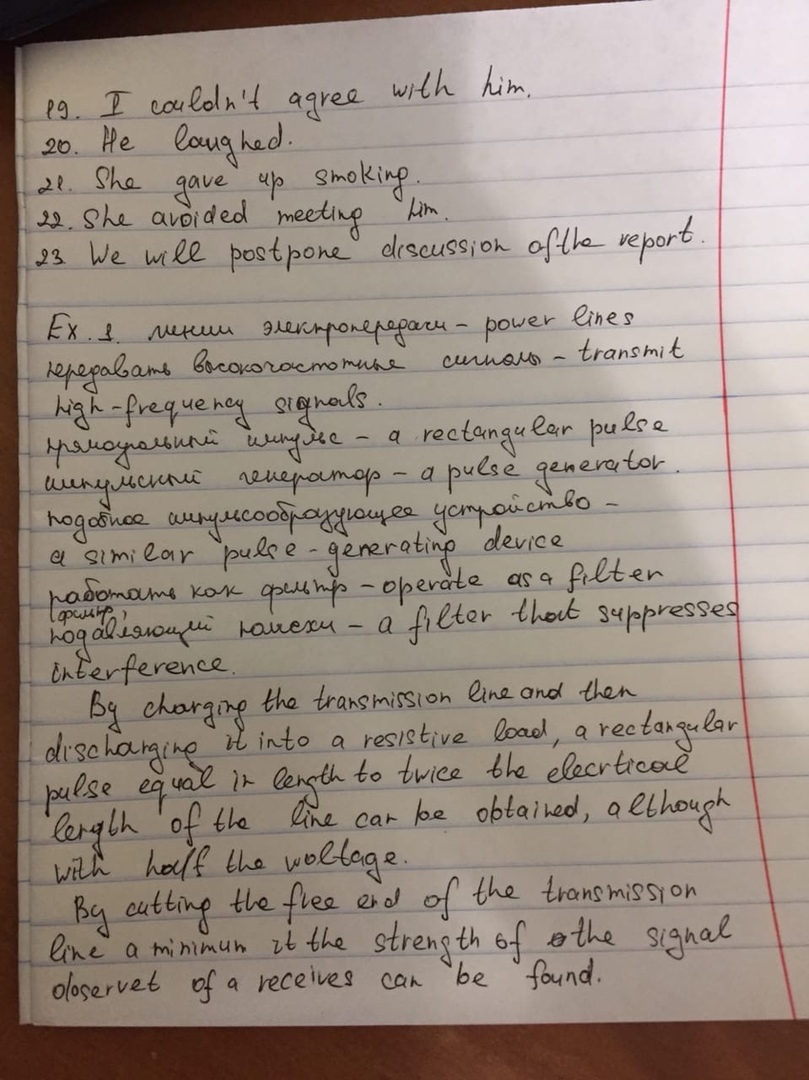 19. I couldn't agree with him.
20. He laughed.
21. She gave up smoking.
22. She avoided meeting him.
23. We will postpone discussion of the report.
Ex. 1. линии электропередачи – power lines
передавать высокочастотные сигналы – transmit
high-frequency signals.
прямоугольный импульс – a rectangular pulse
импульсный генератор – a pulse generator.
подобное импульсообразующее устройство –
a similar pulse-generating device
работать как фильтр – operate as a filter
(фильтр,
подавляющий помехи – a filter that suppresses
interference.
By charging the transmission line and then
discharging it into a resistive load, a rectangular
pulse equal in length to twice the elecrtical
length of the line can be obtained, although
with half the woltage.
By cutting the free end of the transmission
line a minimum it the strength of the signal
observet of a receives can be found.